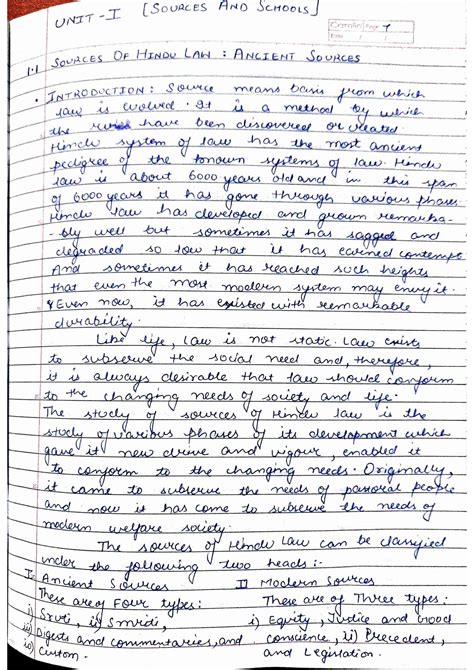 UNIT-I [SOURCES AND SCHOOLS]
Page 1
Date
1.1 SOURCES OF HINDU LAW : ANCIENT SOURCES
• INTRODUCTION: Source means basis from which
law is evolved. It is a method by which
the rules have been discovered or created
Hindu system of law has the most ancient
pedigree of the known systems of law. Hindu
law is about 6000 years old and in this span
of 6000 years it has gone through various phases
Hindu law has developed and grown remarka-
-bly well but sometimes it has sagged and
degraded so low that it has earned contempt
And sometimes it has reached such heights
that even the most modern system may envy it.
Even now, it has existed with remarkable
durability.
Like life, law is not static. Law exists
to subserve the social need and, therefore,
it is always desirable that law should conform
to the changing needs of society and life.
The study of sources of Hindu law is the
study of various phases of its development which
gave it new drive and vigour, enabled it
to conform to the changing needs. Originally,
it came to subserve the needs of pastoral people
and now it has come to subserve the needs of
modern welfare society.
The sources of Hindu Law can be classified
under the following two heads:-
I Ancient Sources II Modern Sources
These are of Four types: These are of Three types:
i) Sruti, ii) Smriti, i) Equity, Justice and Good
iii) Digests and commentaries, and conscience, ii) Precedent,
iv) Custom. and Legislation.